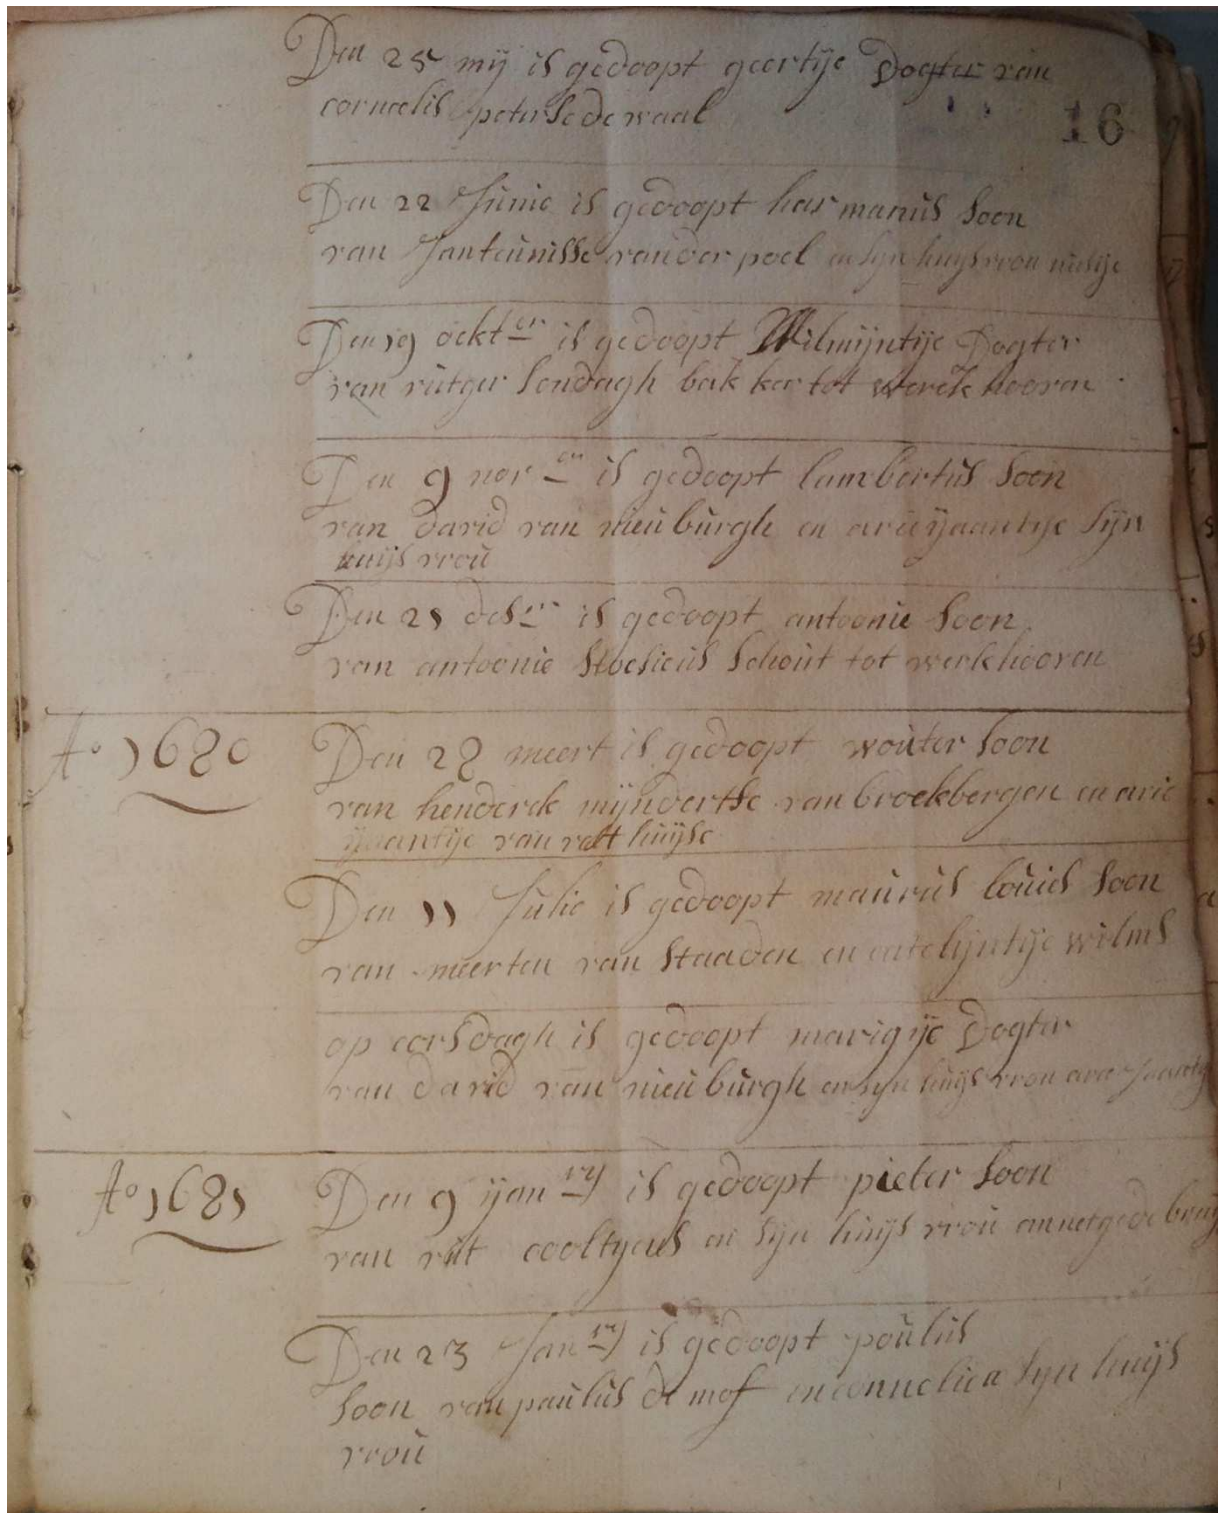 Den 25 mij is gedoopt geertije Dogter van
16
cornelis peterse de waal
Den 22 Junie is gedoopt harmanus soon
van Jan teunisse van der poel en syn huysvrou
Den 19 ockt en is gedoopt Wilmijntije Dogter
van rutger sondagh bakker tot werckhooven
Den 9 nov en is gedoopt lambertus soon
van david van nieuburgh en arieijaantije sijn
huijs vrou
Den 25 des en is gedoopt antoonie soon
van antoonie schout tot werkhooven
Ao 1680 Den 28 meert is gedoopt wouter soon
van henderck mijndertse van broekbergen en arie
ijaantije van huijse
Den 11 Julie is gedoopt maurus louies soon
van meerten van staaden en catelijntije wilms
op corsdagh is gedoopt marigije Dogter
van david van nieuburgh en syn huijsvrou
Ao 1681 Den 9 ijan ry is gedoopt pieter soon
van rut cooltyens en syn huijs vrou annetge de
Den 23 Jan ry is gedoopt poulus
soon van paulus de mof en cornnelica syn huijs
vrou